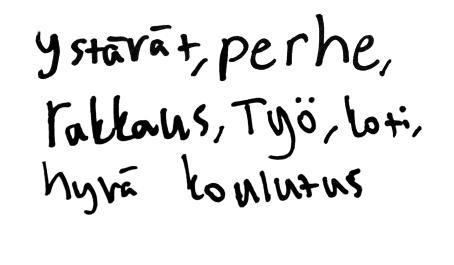 ystävät, perhe,
rakkaus, Työ, koti,
hyvä koulutus